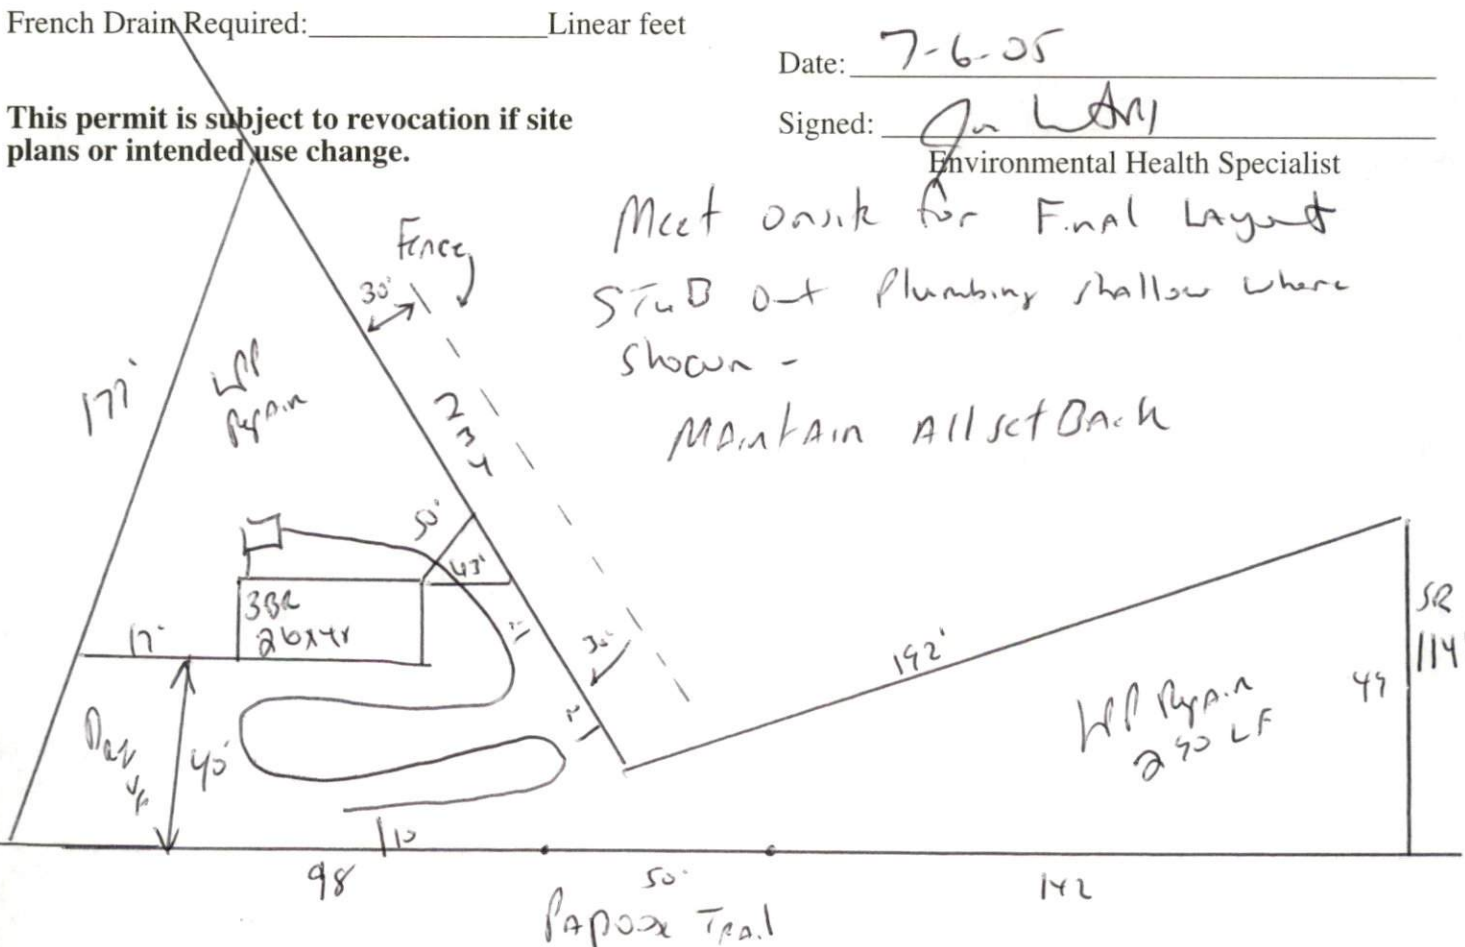 French Drain Required:_______________Linear feet
Date: 7-6-05
This permit is subject to revocation if site
plans or intended use change.
Signed:
Environmental Health Specialist
Meet onsite for Final Layout
Stub out Plumbing shallow where
shown -
Maintain All setBack
Fence
30'
177'
Repair
234
50'
43'
3BR
17'
30'
192'
SR
114'
Repair
40'
10
98
50'
142
Trail